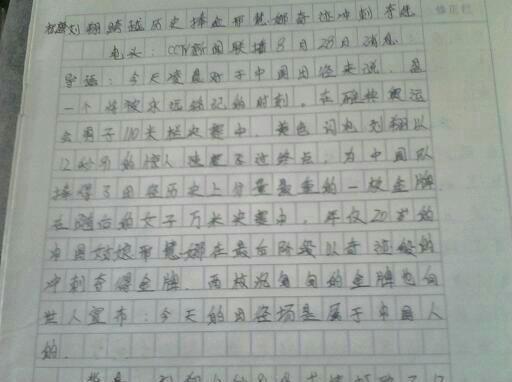 标题刘翔跨越历史捧金邢慧娜奇迹冲刺夺冠
电头：CCTV新闻联播8月28日消息：
导语：今天凌晨对于中国田径来说，是
一个将被永远铭记的时刻。在雅典奥运
会男子110米栏决赛中，黄色闪电刘翔以
12秒91的惊人速度飞过终点，为中国队
捧得了田径历史上分量最重的一枚金牌。
在随后的女子万米决赛中，年仅20岁的
中国姑娘邢慧娜在最后阶段以奇迹般的
冲刺夺得金牌。两枚沉甸甸的金牌也向
世人宣布：今天的田径场是属于中国人
的。
修正栏